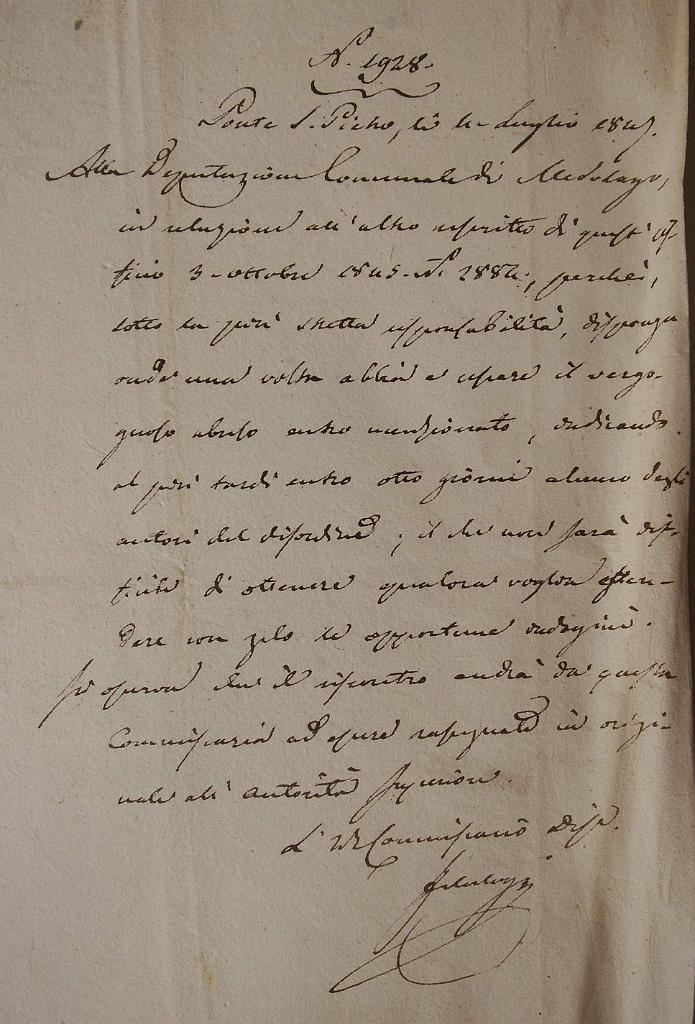 N. 1928.
Ponte S. Pietro, li Luglio
Alla Deputazione Comunale di Medolago,
in relazione all'altro rescritto di quest'Uf-
ficio 3 ottobre 1845 N. perchè,
sotto la più stretta responsabilità, disponga
onde una volta abbia a cessare il vergo-
gnoso abuso entro menzionato, indicando
al più tardi entro otto giorni alcuno degli
autori del disordine; il che non sarà dif-
ficile di ottenere qualora voglia esten-
dere con zelo le opportune indagini.
Si osserva che il riscontro andrà da questa
Commissaria ad essere rassegnato in origi-
nale all'autorità Superiore.
L'IR Commissario Dist.